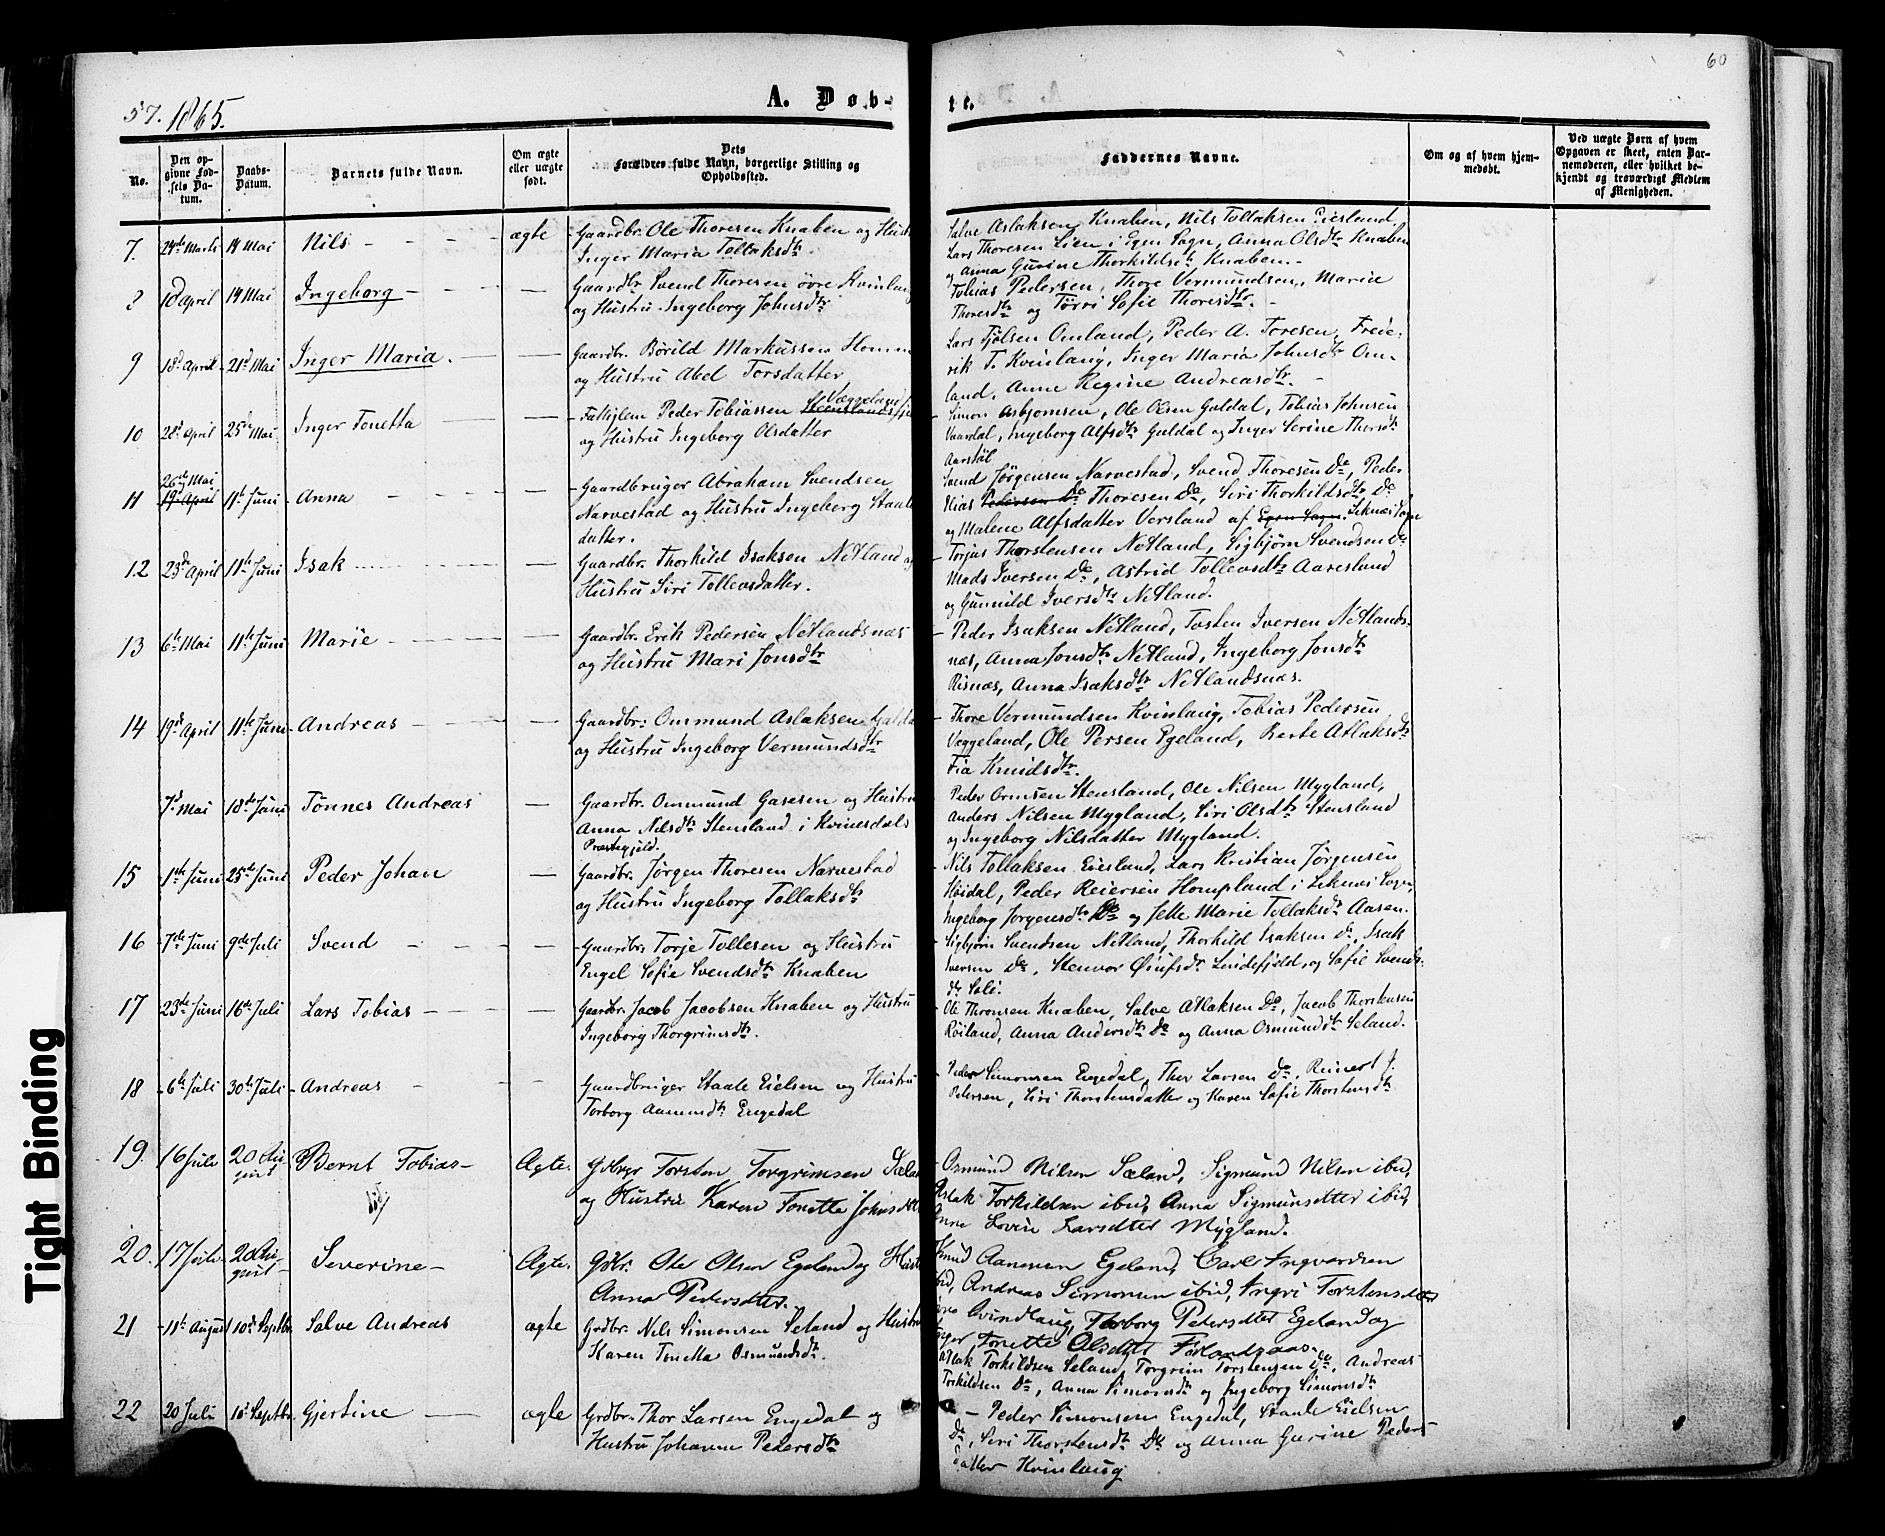 57. 1865.
A. Døb-
te.
60
No.
Den op-
givne Fød-
sels Da-
tum.
Daabs-
Datum.
Barnets fulde Navn.
Om ægte
eller uægte
født.
Dets
Forældres fulde Navn, borgerlige Stilling og
Opholdssted.
Faddernes Navne.
Om og af hvem hjem-
medøbt.
Ved uægte Børn af hvem
Opgaven er skeet, enten Bar-
nemoderen, eller hvilket be-
kjendt og troværdigt Medlem
af Menigheden.
7. 24de Marts 14 Mai Nils ægte Gaardbr. Ole Thoresen Knaben og Hustr
Inger Maria Tollaksdtr.
Salve Aslaksen Knaben, Nils Tollaksen Eiesland,
Lars Thoresen Lien i Egen Sogn, Anna Olsdtr Knaben
og Anna Gurine Thorkildsdtr Knaben.
8 10d April 14 Mai Ingeborg Gaardbr Svend Thoresen øvre Kvinlaug
og Hustru Ingeborg Johnsdtr
Tobias Pedersen, Thore Vermundsen, Maria
Thoresdtr og Tørri Sofie Thoresdtr.
9 18d April 21d Mai Inger Maria. Gaardbr. Børild Markussen Homm
og Hustru Abel Torsdatter
Lars Tjølsen Omland, Peder A. Toresen, Frede-
rik T. Kvinlaug, Inger Maria Johnsdtr Om-
land, Anne Regine Andreasdtr.
10 28d April 25d Mai Inger Tonetta Fattiglem Peder Tobiassen Stenslandsfj Væggeland
og Hustru Ingeborg Olsdatter
Simon Asbjørnsen, Ole Olsen Guldal, Tobias Johnsen
Vaardal, Ingeborg Alfsdtr Guldal og Inger Serine Thorsdtr
Aarstøl
11 26de Mai 19 April 11te Juni Anna Gaardbruger Abraham Svendsen
Narvestad og Hustru Ingeborg Staale
datter.
Svend Jørgensen Narvestad, Svend Thoresen Do, Peder
Elias Pedersen Do Thoresen Do, Siri Thorkildsdtr Do
og Malene Alfsdatter Versland af Egen Sogn. Liknes Sogn
12 23de April 11te Juni Isak Gaardbr. Thorkild Isaksen Netland og
Hustru Siri Tollevsdatter.
Torjus Thorstensen Netland, Sigbjørn Svendsen Do
Mads Iversen Do, Astrid Tollevsdtr Aaresland
og Gunnild Iversdtr Netland.
13 6te Mai 11te Juni Marie Gaardbr. Erik Pedersen Netlandsnæs
og Hustru Mari Jonsdtr
Peder Isaksen Netland, Tosten Iversen Netlands-
næs, Anna Jonsdtr Netland, Ingeborg Jonsdtr
Risnæs, Anna Isaksdtr Netlandsnæs.
14 19d April 11te Juni Andreas Gaardbr: Ommund Aslaksen Galda
og Hustru Ingeborg Vermundsdtr
Thore Vermundsen Kvinlaug, Tobias Pedersen
Væggeland, Ole Persen Egeland, Berte Atlaksdtr
Fia Knudsdtr.
7d Mai 18de Juni Tønnes Andreas Gaardbr. Ommund Gasesen og Hustru
Anna Nilsdtr Stensland i Kvinesdals
Præstegjeld.
Peder Ormsen Stensland, Ole Nilsen Mygland,
Anders Nilsen Mygland, Siri Olsdtr Stensland
og Ingeborg Nilsdatter Mygland.
15 1te Juni 25de Juni Peder Johan Gaardbr. Jørgen Thoresen Narvestad
og Hustru Ingeborg Tollaksdtr
Nils Tollaksen Eiesland, Lars Kristian Jørgensen
Heidal, Peder Reiersen Hompland i Liknes Sogn,
Ingeborg Jørgensdtr Do og Jelle Marie Tollaksdtr Aasen.
16 7de Juni 9de Juli Svend Gaardbr. Torje Tollesen og Hustru
Engel Sofie Svendsdtr Knaben
Sigbjørn Svendsen Netland, Thorkild Isaksen Do, Isak
Iversen Do, Stenvor Øiufsdr Lindefjeld, og Sofie Svends-
dr Soli.
17 23de Juni 16de Juli Lars Tobias Gaardbr. Jacob Jacobsen Knaben og Hustru
Ingeborg Thorgrimsdtr.
Ole Thronsen Knaben, Salve Atlaksen Do, Jacob Thorstensen
Røiland, Anna Andersdtr Do og Anna Osmundsdtr Seland.
18 6te Juli 30te Juli Andreas Gaardbruger Staale Eielsen og Hustru
Torborg Aamundsdtr Engedal
Peder Simonsen Engedal, Thor Larsen Do, Reinert J.
Petersen, Siri Thorstensdatter og Karen Sofie Thorstensdtr
19. 16 Juli 20 Au-
gust Bernt Tobias Ægte. Gdbrgr Torsten Torgrimsen Sælan
og Hustru Karen Tonette Johnsdtt
Osmund Nilsen Sæland, Sigmund Nilsen ibid,
Aslak Torkildsen ibid, Anna Sigmunsdtter ibid,
Anne Lovise Larsdtter Mygland.
20. 17 Juli 20 Au-
gust Severine Ægte. Gdbr. Ole Olsen Egeland og Hustr
Anna Pedersdtter.
Knud Aanensen Egeland, Carl Ingvardsen
ibid, Andreas Simonsen ibid, Ingri Torstensdtter
Kvindlaug, Torborg Pedersdtter Egeland og
Inger Tonette Olsdtter Førlandsaas.
21 11te August 10d Septbr Salve Andreas ægte Grdbr. Nils Simonsen Seland og Hustru
Karen Tonetta Osmundsdtr.
Aslak Torkildsen Seland, Torgrim Torstensen Do, Andreas
Torkildsen Do, Anna Simonsdtr og Ingeborg Simonsdtr
22 20 Juli 10d Septbr Gjertine ægte Grdbr. Thor Larsen Engedal og
Hustru Johanne Pedersdtr
Peder Simonsen Engedal, Staale Eielsen
Do, Siri Thorstensdtr Do og Anna Gurine Peders-
datter Kvinlaug
Tight Binding